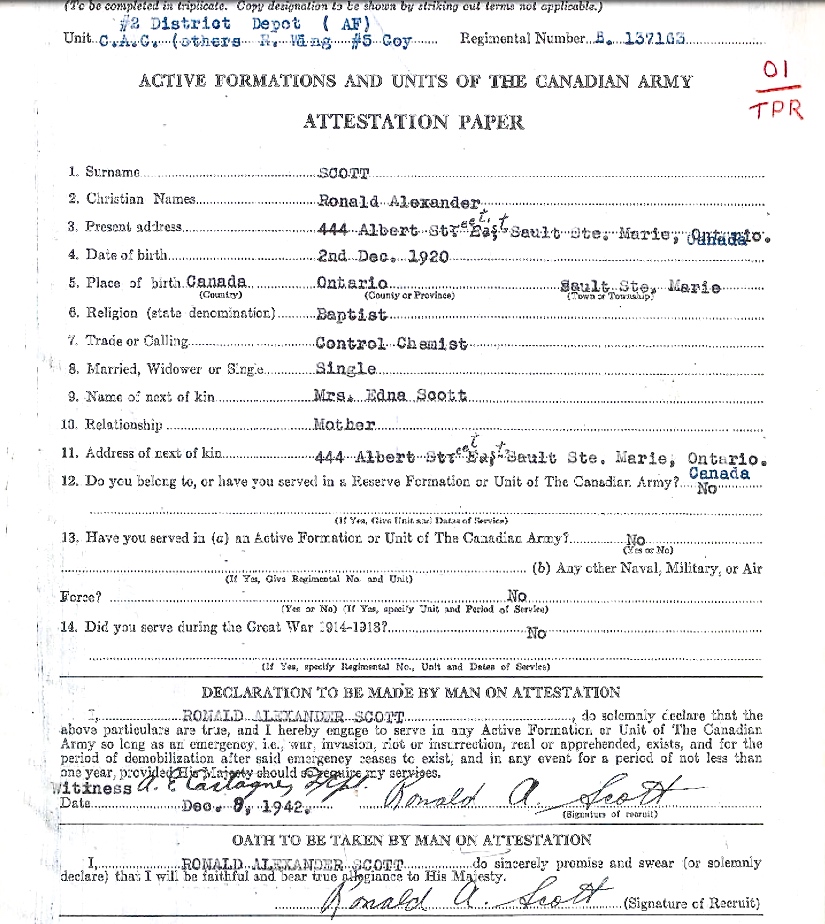 (To be completed in triplicate. Copy designation to be shown by striking out terms not applicable.)
#2 District Depot ( AF)
Unit C.A.C. (others R. Wing #5 Coy Regimental Number B. 137163
01
TPR
ACTIVE FORMATIONS AND UNITS OF THE CANADIAN ARMY
ATTESTATION PAPER
1. Surname SCOTT
2. Christian Names Ronald Alexander
3. Present address 444 Albert Street East Sault Ste. Marie, Ontario. Canada
4. Date of birth 2nd Dec. 1920
5. Place of birth Canada Ontario Sault Ste, Marie
(Country) (County or Province) (Town or Township)
6. Religion (state denomination) Baptist
7. Trade or Calling Control Chemist
8. Married, Widower or Single Single
9. Name of next of kin Mrs. Edna Scott
10. Relationship Mother
11. Address of next of kin 444 Albert Street East Sault Ste. Marie, Ontario.
Canada
12. Do you belong to, or have you served in a Reserve Formation or Unit of The Canadian Army? No
(If Yes, Give Unit and Dates of Service)
13. Have you served in (a) an Active Formation or Unit of The Canadian Army? No
(Yes or No)
(b) Any other Naval, Military, or Air
(If Yes, Give Regimental No. and Unit)
Force? No
(Yes or No) (If Yes, specify Unit and Period of Service)
14. Did you serve during the Great War 1914-1918? No
(If Yes, specify Regimental No., Unit and Dates of Service)
DECLARATION TO BE MADE BY MAN ON ATTESTATION
I, RONALD ALEXANDER SCOTT, do solemnly declare that the
above particulars are true, and I hereby engage to serve in any Active Formation or Unit of The Canadian
Army so long as an emergency, i.e., war, invasion, riot or insurrection, real or apprehended, exists, and for the
period of demobilization after said emergency ceases to exist, and in any event for a period of not less than
one year, provided His Majesty should so require my services.
Witness A. E. Castagne,
Date Dec. 9, 1942. Ronald A. Scott
(Signature of recruit)
OATH TO BE TAKEN BY MAN ON ATTESTATION
I, RONALD ALEXANDER SCOTT do sincerely promise and swear (or solemnly
declare) that I will be faithful and bear true allegiance to His Majesty.
Ronald A. Scott (Signature of Recruit)